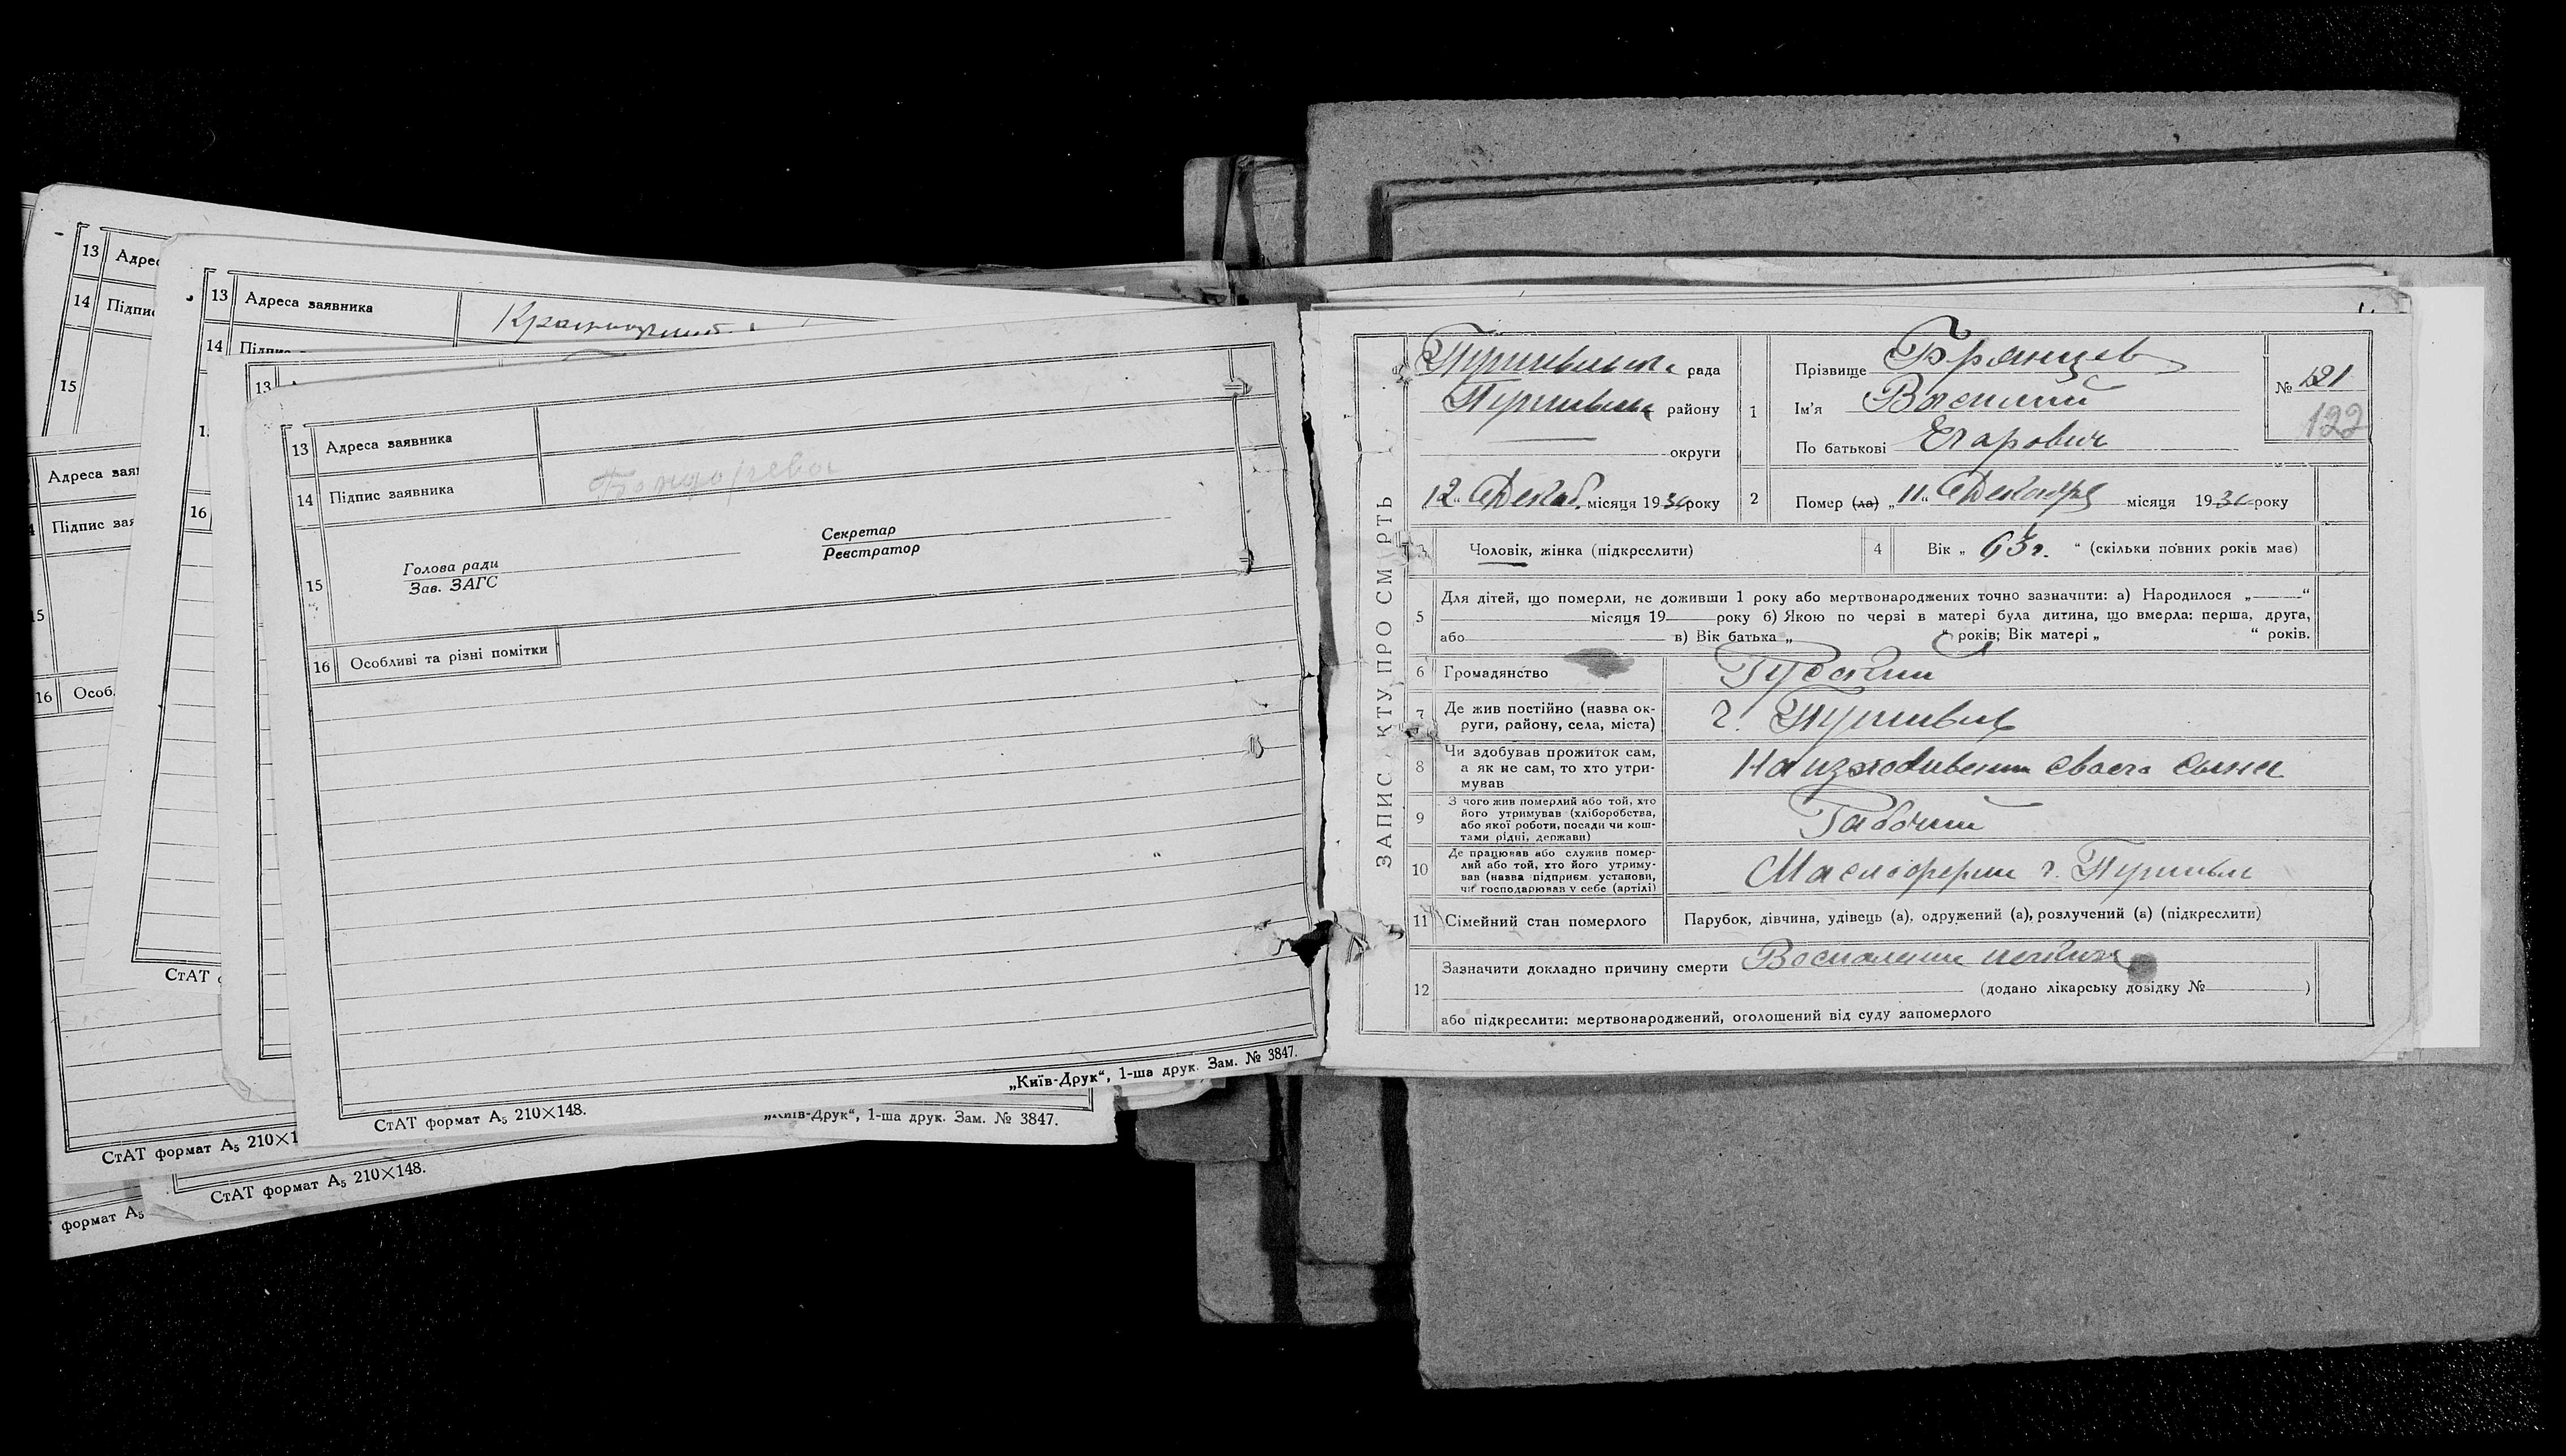 13 Адрес
14 Підпис
15
13 Адреса заявника
14
16
13
Адреса
Підпис
16 Особ.
СтАТ
СтАТ формат А₅ 210×1
СтАТ формат А₅ 210×148.
формат А₅
„Київ-Друк“, 1-ша друк. Зам. № 3847.
13 Адреса заявника
14 Підпис заявника
15 Голова ради
Зав. ЗАГС
Секретар
Реєстратор
16 Особливі та різні помітки
СтАТ формат А₅ 210×148.
„Київ-Друк“, 1-ша друк. Зам. № 3847.
ЗАПИС АКТУ ПРО СМЕРТЬ
рада
району
округи
12 „ Декаб. місяця 1934 року
1 Прізвище Брянцев
Ім'я Василий
По батькові Егарович
№ 121
122
2 Помер (ла) „ 11 “ Декабря місяця 1934 року
3 Чоловік, жінка (підкреслити)
4 Вік „ 63 г. “ (скільки повних років має)
5 Для дітей, що померли, не доживши 1 року або мертвонароджених точно зазначити: а) Народилося „ “
місяця 19 року б) Якою по черзі в матері була дитина, що вмерла: перша, друга,
або в) Вік батька „ “ років; Вік матері „ “ років.
6 Громадянство Русский
7 Де жив постійно (назва округи, району, села, міста) г. Путивль
8 Чи здобував прожиток сам, а як не сам, то хто утримував На изждивении своего сына
9 З чого жив померлий або той, хто його утримував (хліборобства, або якої роботи, посади чи коштами рідні, держави) Рабочий
10 Де працював або служив померлий або той, хто його утримував (назва підприєм. установи, чи господарював у себе (артілі) г. Путивль
11 Сімейний стан померлого Парубок, дівчина, удівець (а), одружений (а), розлучений (а) (підкреслити)
12 Зазначити докладно причину смерти Воспаление почек
(додано лікарську довідку № )
або підкреслити: мертвонароджений, оголошений від суду запомерлого